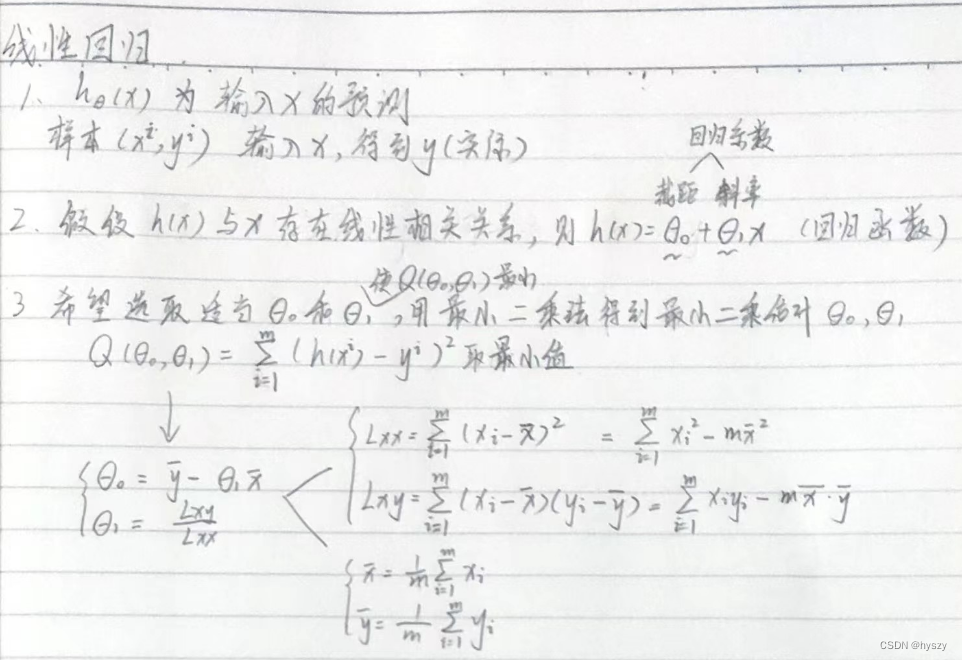 线性回归
1、hθ(x) 为 输入x的预测
样本(xⁱ, yⁱ) 输入x, 得到y(实际)
回归系数
截距 斜率
2. 假设 h(x) 与 x 存在线性相关关系, 则 h(x)=θ₀+θ₁x (回归函数)
使Q(θ₀,θ₁)最小
3 希望选取适当θ₀和θ₁, 用最小二乘法得到最小二乘估计 θ₀,θ₁
Q(θ₀,θ₁) = ∑ᵢ₌₁ᵐ (h(xⁱ) - yⁱ)² 取最小值
Lxx = ∑ᵢ₌₁ᵐ (xᵢ - x̄)² = ∑ᵢ₌₁ᵐ xᵢ² - mx̄²
θ₀ = ȳ - θ₁x̄
Lxy = ∑ᵢ₌₁ᵐ (xᵢ - x̄)(yᵢ - ȳ) = ∑ᵢ₌₁ᵐ xᵢyᵢ - mx̄·ȳ
θ₁ = Lxy/Lxx
x̄ = 1/m ∑ᵢ₌₁ᵐ xᵢ
ȳ = 1/m ∑ᵢ₌₁ᵐ yᵢ
CSDN @hyszy